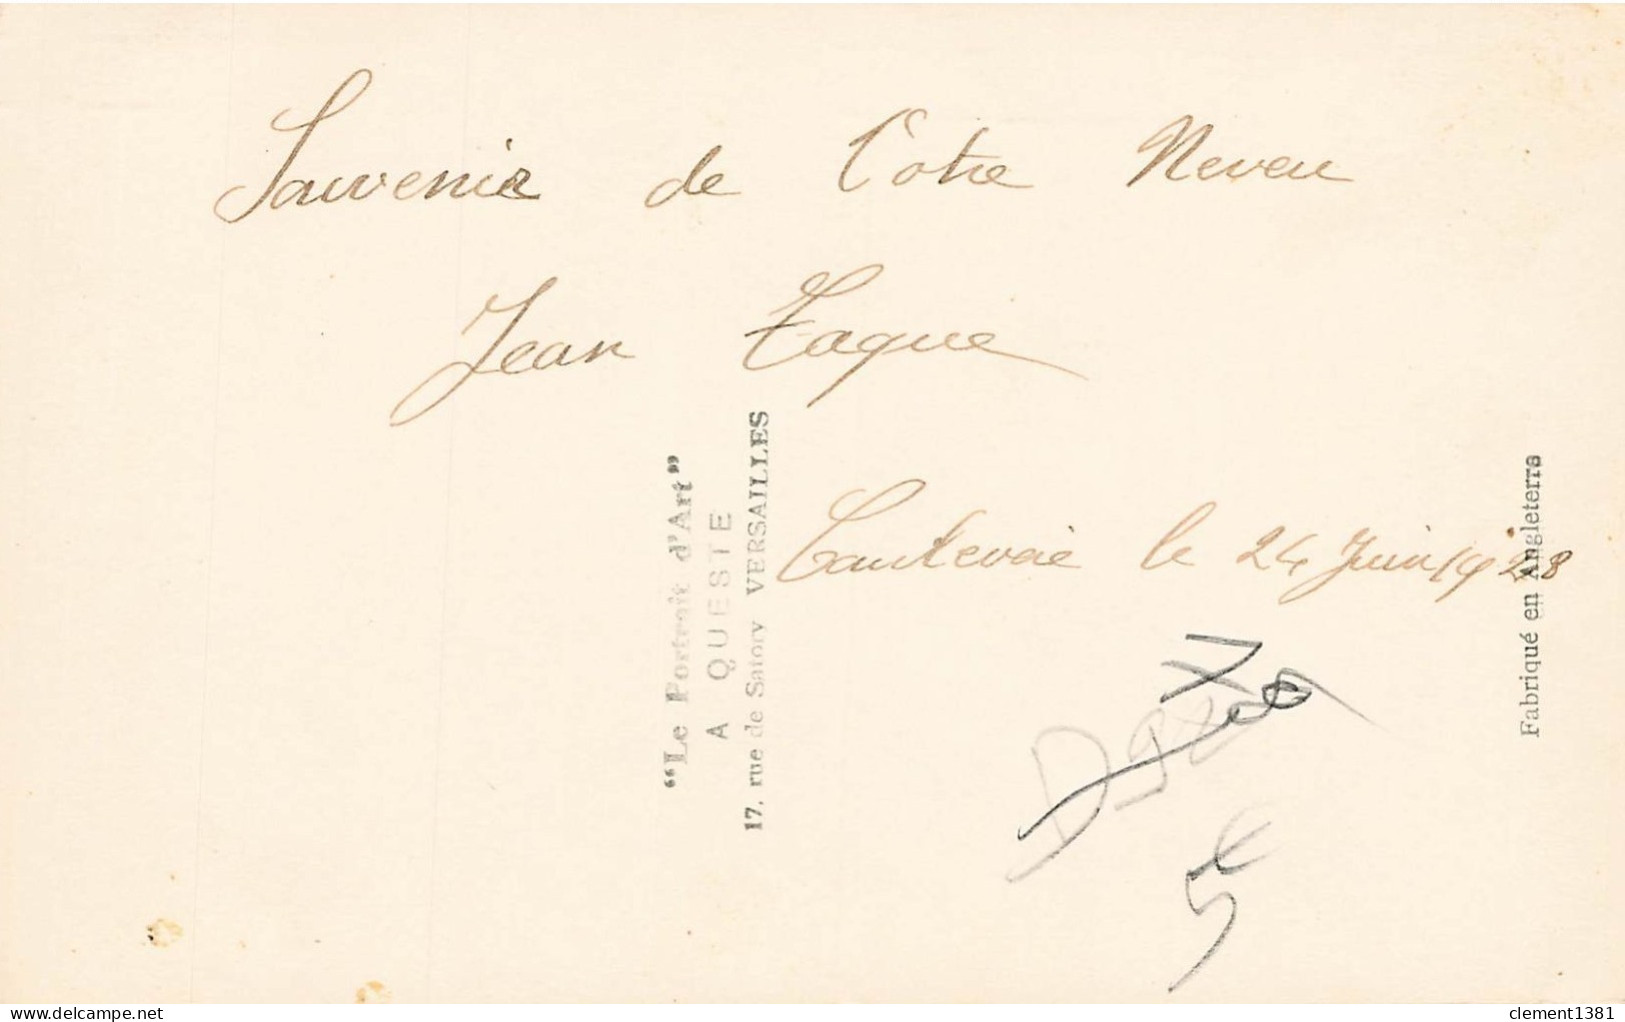 Souvenir de Votre Neveu
Jean Taque
le 24 Juin 1928
“Le Portrait d'Art”
A QUESTE
17, rue de Satory VERSAILLES
Fabriqué en Angleterre
5€
delcampe.net
clement1381